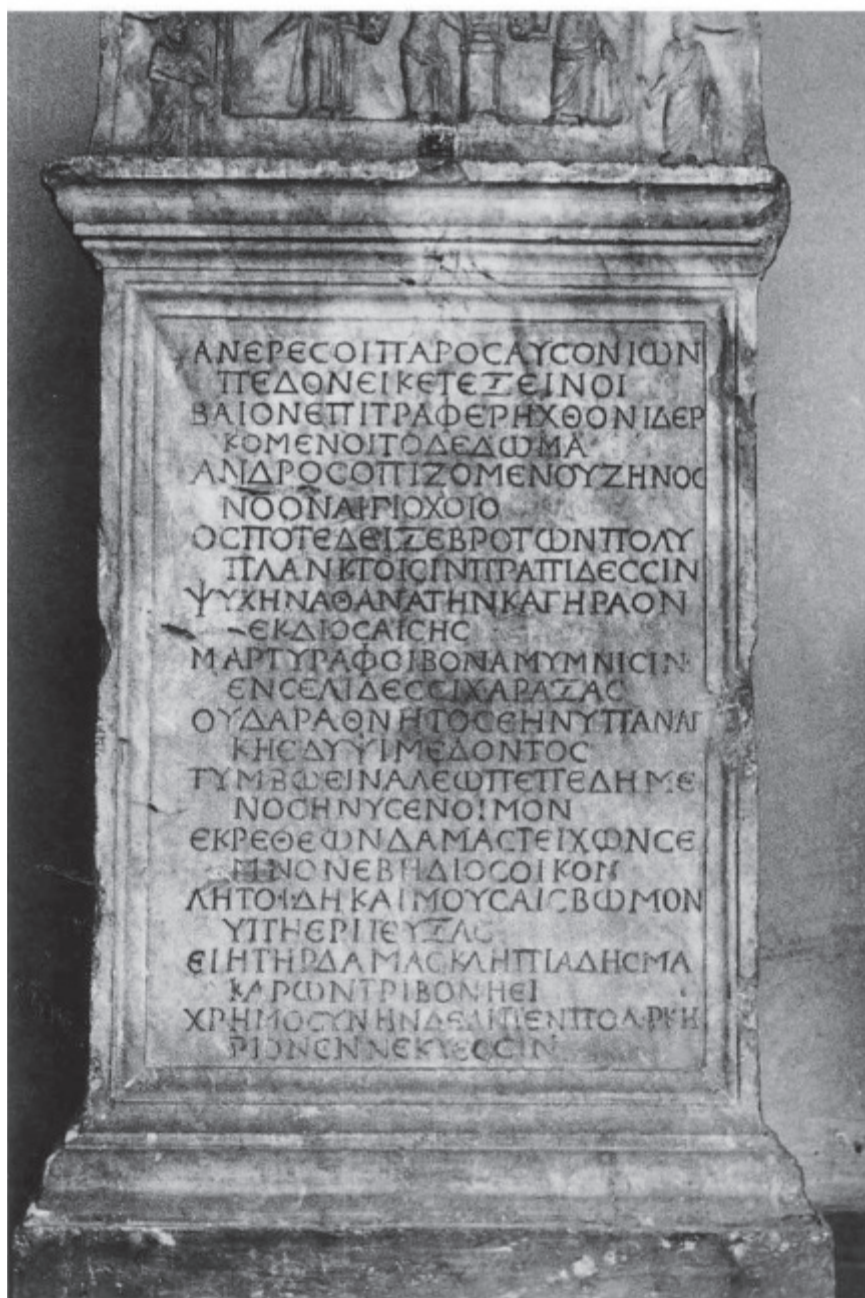 ΑΝΕΡΕϹΟΙΠΑΡΟϹΑΥϹΟΝΙΩΝ
ΠΕΔΟΝΕΙΚΕΤΕΞΕΙΝΟΙ
ΒΑΙΟΝΕΠΙΤΡΑΦΕΡΗΧΘΟΝΙΔΕΡ
ΚΟΜΕΝΟΙΤΟΔΕΔΩΜΑ
ΑΝΔΡΟϹΟΠΙΖΟΜΕΝΟΥΖΗΝΟϹ
ΝΟΟΝΑΙΓΙΟΧΟΙΟ
ΟϹΠΟΤΕΔΕΙΞΕΒΡΟΤΩΝΠΟΛΥ
ΠΛΑΝΚΤΟΙϹΙΝΠΡΑΠΙΔΕϹϹΙΝ
ΨΥΧΗΝΑΘΑΝΑΤΗΝΚΑΓΗΡΑΟΝ
ΕΚΔΙΟϹΑΙϹΗϹ
ΜΑΡΤΥΡΑΦΟΙΒΟΝΑΜΥΜΝΙϹΙΝ
ΕΝϹΕΛΙΔΕϹϹΙΧΑΡΑΞΑϹ
ΟΥΔΑΡΑΘΝΗΤΟϹΕΗΝΥΠΑΝΑΓ
ΚΗϹΔΥΨΙΜΕΔΟΝΤΟϹ
ΤΥΜΒΩΕΙΝΑΛΕΩΠΕΠΕΔΗΜΕ
ΝΟϹΗΝΥϹΕΝΟΙΜΟΝ
ΕΚΡΕΘΕΩΝΔΑΜΑϹΤΕΙΧΩΝϹΕ
ΜΝΟΝΕΒΗΔΙΟϹΟΙΚΟΝ
ΛΗΤΟΙΔΗΚΑΙΜΟΥϹΑΙϹΒΩΜΟΝ
ΥΠΗΕΡΙΤΕΥΞΑϹ
ΕΙΗΤΗΡΔΑΜΑϹΚΛΗΠΙΑΔΗϹΜΑ
ΚΑΡΩΝΤΡΙΒΟΝΗΕΙ
ΧΡΗΜΟϹΥΝΗΝΔΕΛΙΠΕΝΠΟΛΥΚΗ
ΡΙΟΝΕΝΝΕΚΥΕϹϹΙΝ